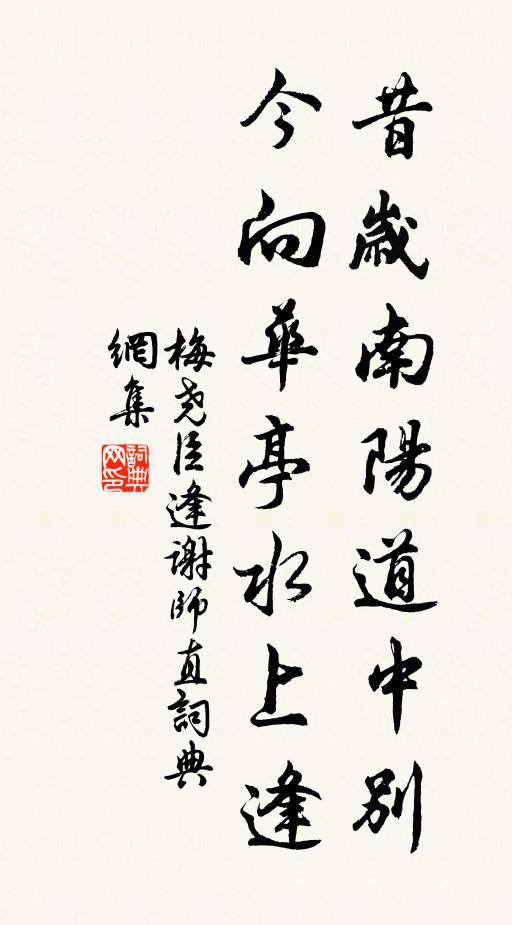 昔歲南陽道中別
今向華亭水上逢
梅尧臣逢謝師直詞典
網集
詞典网印